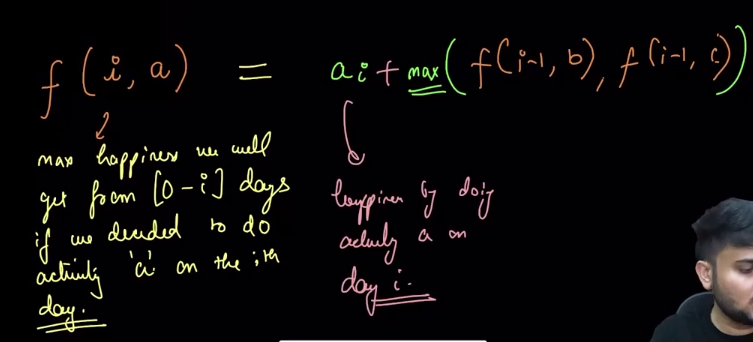 f(i, a) = ai + max(f(i-1, b), f(i-1, c))
max happiness we will
get from [0-i] days
if we decided to do
activity 'a' on the ith
day.
happiness by doing
activity a on
day i.